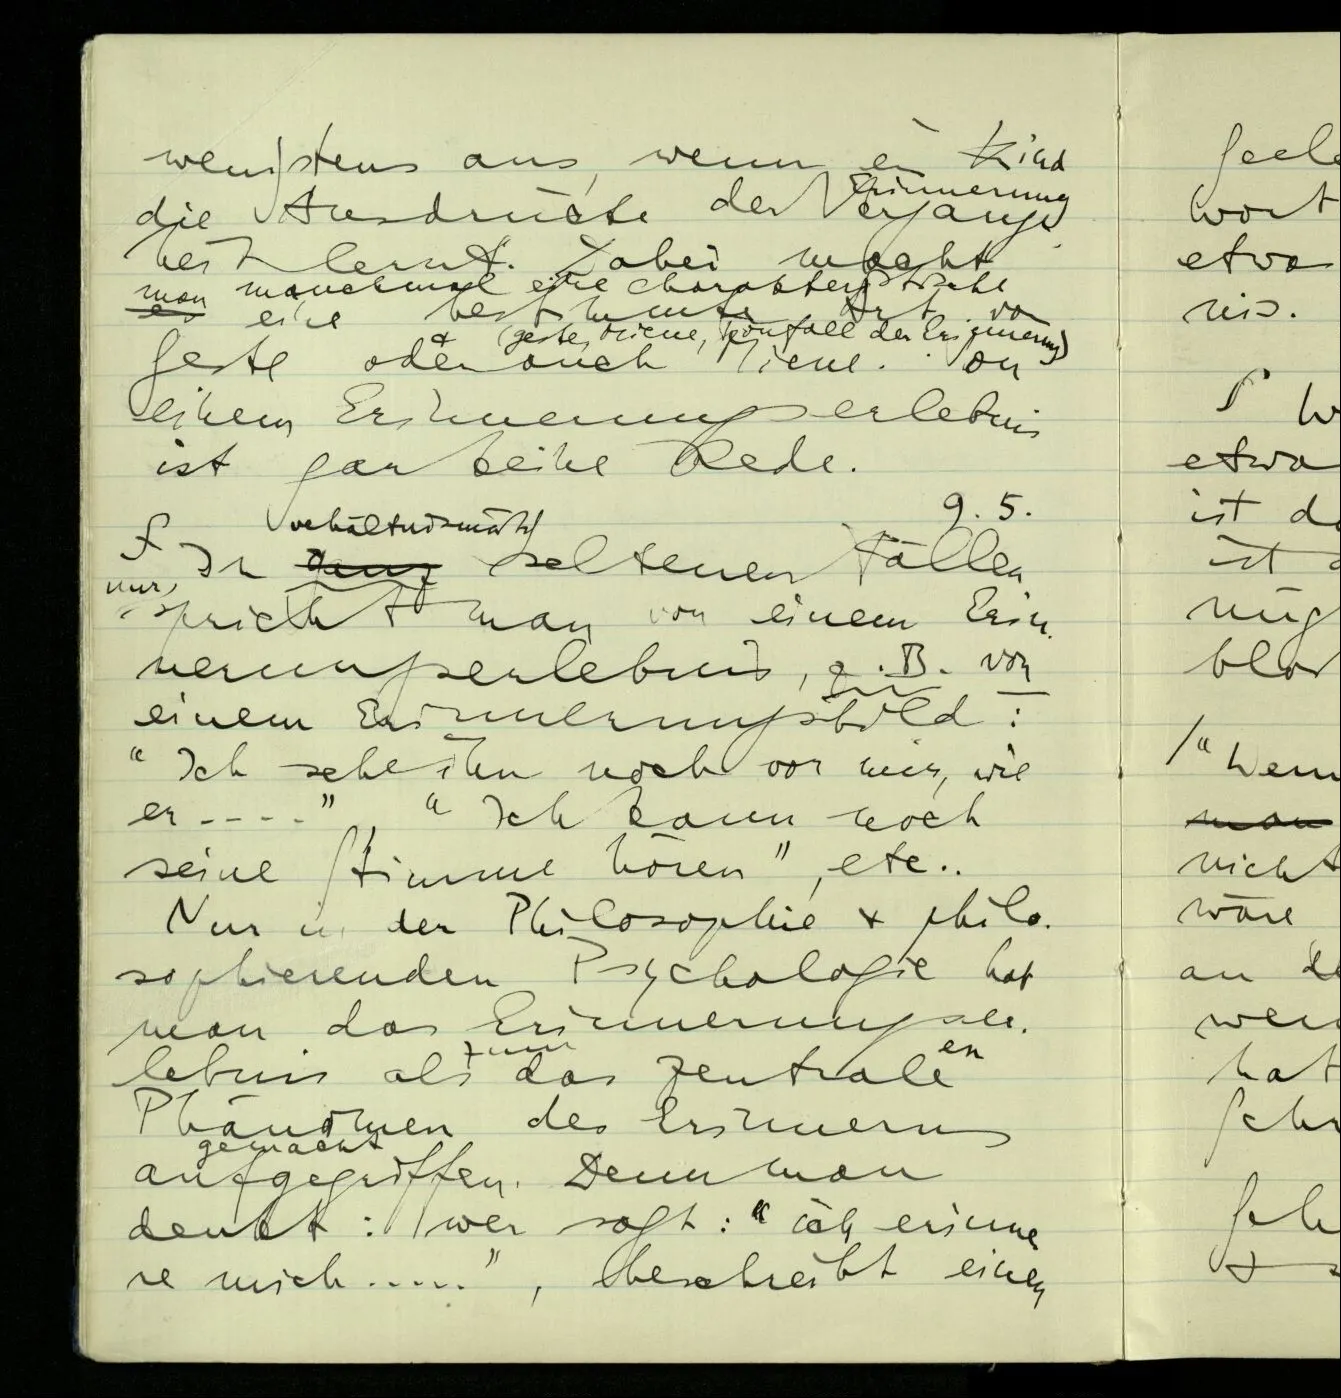 wenigstens aus, wenn ein Kind
Erinnerung
die Ausdrücke der Vergangen
heit lernt. Dabei macht
man manchmal eine charakteristische
es eine bestimmte Art von
& (Geste, Miene, Tonfall der Erinnerung)
Geste oder auch Miene. Von
einem Erinnerungserlebnis
ist gar keine Rede.
9. 5.
verhältnismäßig
∫ In ganz seltenen Fällen
nur,
spricht man von einem Erin
nerungserlebnis, z. B. von
einem Erinnerungsbild:
"Ich sehe ihn noch vor mir, wie
er ...." "Ich kann noch
seine Stimme hören", etc..
Nur in der Philosophie & philo-
sophierenden Psychologie hat
man das Erinnerungser-
zum en
lebnis als das zentrale
Phänomen des Erinnerns
gemacht
aufgegriffen. Denn man
denkt: wer sagt: "ich erinne
re mich .....", beschreibt einen
wort
etwa
nis.
etwa
ist
ist
/"Wenn
man
nicht
wäre
an
hat